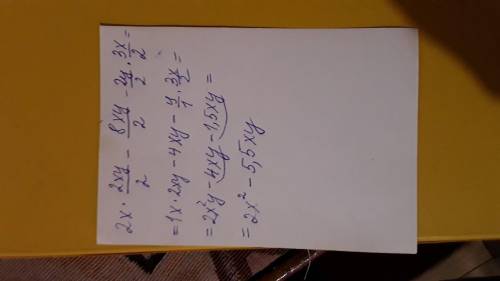 2x · 2xy/2 - 8xy/2 - 2y/2 · 3x/2 =
= 1x · 2xy - 4xy - y/1 · 3x/2 =
= 2x²y - 4xy - 1,5xy =
= 2x² - 5,5xy